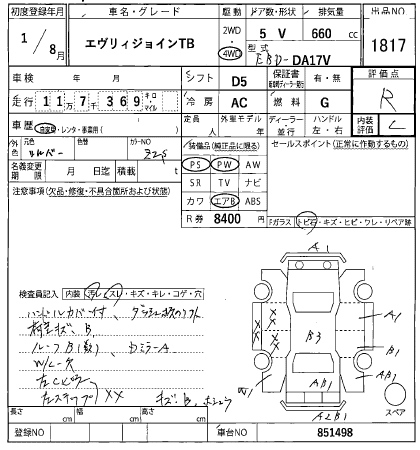 初度登録年月 車名・グレード 駆動 ドア数・形状 排気量 出品NO
1/8月 エヴリィジョインTB 2WD・4WD 5 V 660 cc 1817
型式 EBD-DA17V
車検 年 月 シフト D5 保証書 有・無 評価点 R
走行 117369 キロ・マイル 冷房 AC 燃料 G
車歴 自家用・レンタ・事業用( ) 定員 人 外車モデル 年 ディーラー・並行 ハンドル 左・右 内装評価 C
外色 元色 シルバー 色替 カラーNO Z2S
装備品(純正品に限る) セールスポイント(正常に作動するもの)
名義変更期限 月 日迄 積載 t
PS PW AW
SR TV ナビ
カワ エアB ABS
R券 8400
注意事項(欠品・修復・不具合箇所および状態)
Fガラス トビ石・キズ・ヒビ・ワレ・リペア跡
検査員記入 内装 汚レ・スレ・キズ・キレ・コゲ・穴
ハンドルカバー付
キズ、B
ルーフB(数)、DミラーA
W/L欠
左ステップXX
キズ、B
A1
XX
XX
B3
A1
B1
W1
AB1
B1
R
A2B1
スペア
長さ cm 幅 cm 高さ cm
登録NO 車台NO 851498